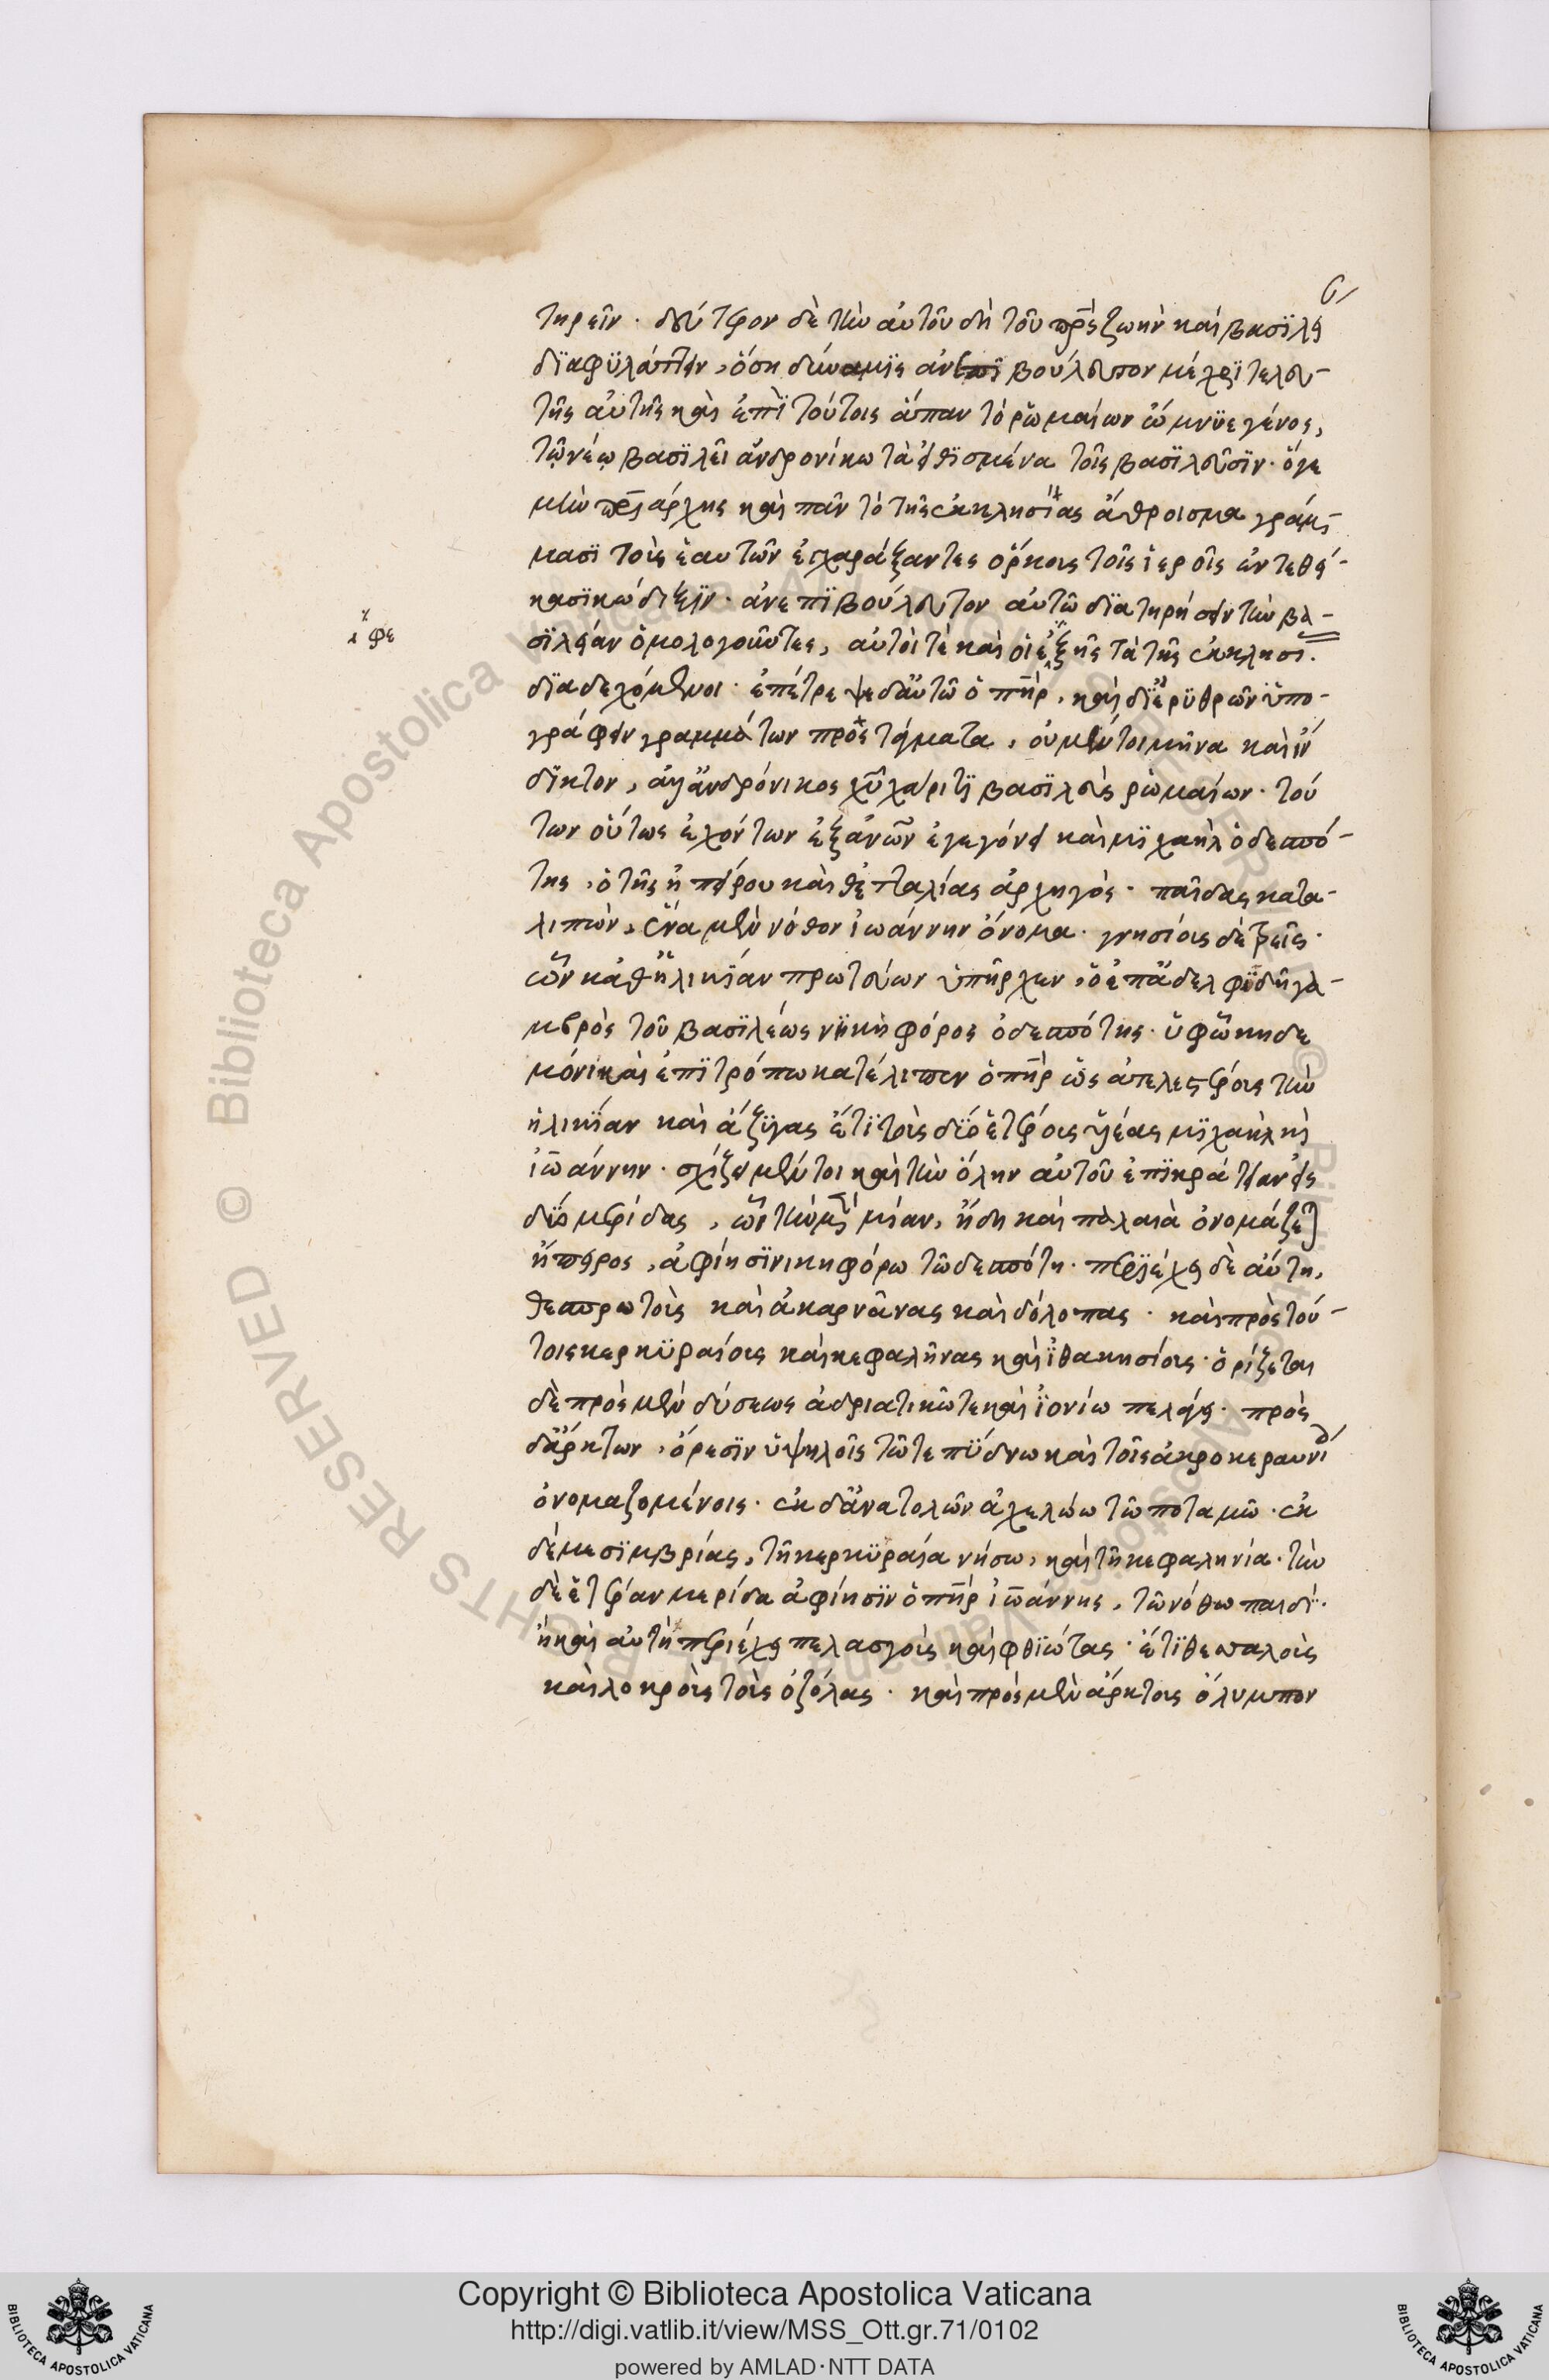 τηρεῖν · δεύτερον δὲ τὴν αὐτοῦ δὴ τοῦ πρς ζωὴν καὶ βασϊλεί
δϊαφϋλάττειν, ὅση δύναμϊς ἀνεπϊβούλευτον μέχρϊ τελευ-
τῆς αὐτῆς καὶ ἐπῒ τούτοις ἅπαν τὸ ῥωμαίων ὤμνϋε γένος,
τῷ νέῳ βασϊλεῖ ἀνδρονίκω τὰ εἰθϊσμένα τοῖς βασϊλεῦσϊν · ὅγε
μὴν πρϊάρχης καὶ πᾶν τὸ τῆς ἐκκλησίας ἄθροισμα γράμ-
μασϊ τοὺς ἑαυτῶν ἐγχαράξαντες ὅρκους τοῖς ἱεροῖς ἐντεθεί-
κασϊ κώδιξϊν · ἀνεπϊβούλευτον αὐτῶ δϊατηρήσειν τὴν βα-
σϊλείαν ὁμολογοῦντες, αὐτοί τε καὶ οἱ ἐξῆς τὰ τῆς ἐκκλησι.
δϊαδεχόμενοι · ἐπέτρεψε δ' αὐτῶ ὁ πηρ, καὶ δϊ' ἐρϋθρῶν ὑπο-
γράφειν γραμμάτων προστάγματα, οὐ μέντοι μῆνα καὶ ἰν
δϊκτον, ἀλλ' ἀνδρόνικος χυ χάριτϊ βασϊλεὺς ῥωμαίων · τού
των οὕτως ἐχόντων ἐξ ἀνων ἐγεγόνει καὶ μϊχαὴλ ὁ δεσπό-
της, ὁ τῆς ἠπείρου καὶ θετταλίας ἀρχηγὸς · παῖδας κατα-
λιπὼν, ἕνα μὲν νόθον ἰωάννην ὄνομα · γνησίους δὲ τρεῖς ·
ὧν καθ' ἡλικϊαν πρωτεύων ὑπῆρχεν, ὁ ἐπ' ἀδελφϊδῆ γα-
μβρὸς τοῦ βασϊλέως νϊκηφόρος ὁ δεσπότης · ὑφ' ὧ κηδε
μόνι καὶ ἐπϊτρόπω κατέλιπεν ὁ πηρ ὡς ἀτελεστέρους τὴν
ἡλικϊαν καὶ ἄζϋγας ἔτϊ τοὺς δύο ἑτέρους ϋἱέας μϊχαὴλ καὶ
ἰωάννην · σχίζει μέντοι καὶ τὴν ὅλην αὐτοῦ ἐπϊκράτειαν εἰς
δύο μερίδας, ὧν τὴν μὲν μίαν, ἥδη καὶ παλαιὰ ὀνομάζεται
ἤπειρος, ἀφίησϊ νικηφόρω τῶ δεσπότη · περϊέχει δὲ αὕτη,
θεσπρωτοὺς καὶ ἀκαρνᾶνας καὶ δόλοπας · καὶ πρὸς τού-
τοις κερκϋραίους καὶ κεφαλῆνας καὶ ϊθακησίους · ὁρίζεται
δὲ πρὸς μὲν δύσεως ἀδριατικῶ τε καὶ ϊονίω πελάγει · πρὸς
δ' ἄρκτων, ὄρεσϊν ὑψηλοῖς τῶ τε πϋδνω καὶ τοῖς ἀκροκεραυνί
ὀνομαζομένοις · ἐκ δ' ἀνατολῶν ἀχελώω τῶ ποταμῶ · ἐκ
δὲ μεσϊμβρίας, τῆ κερκϋραία νήσω, καὶ τῆ κεφαληνία · τὴν
δὲ ἑτέραν μερίδα ἀφίησϊν ὁ πηρ ἰωάννης, τῶ νόθω παιδϊ ·
ἡ καὶ αὐτὴ περιέχει πελασγοὺς καὶ φθϊώτας · ἔτϊ θετταλοὺς
καὶ λοκροὺς τοὺς ὀζόλας · καὶ πρὸς μὲν ἄρκτους ὄλυμπον
© Biblioteca Apostolica Vaticana
Copyright © Biblioteca Apostolica Vaticana
http://digi.vatlib.it/view/MSS_Ott.gr.71/0102
powered by AMLAD·NTT DATA
BIBLIOTECA APOSTOLICA VATICANA
BIBLIOTECA APOSTOLICA VATICANA